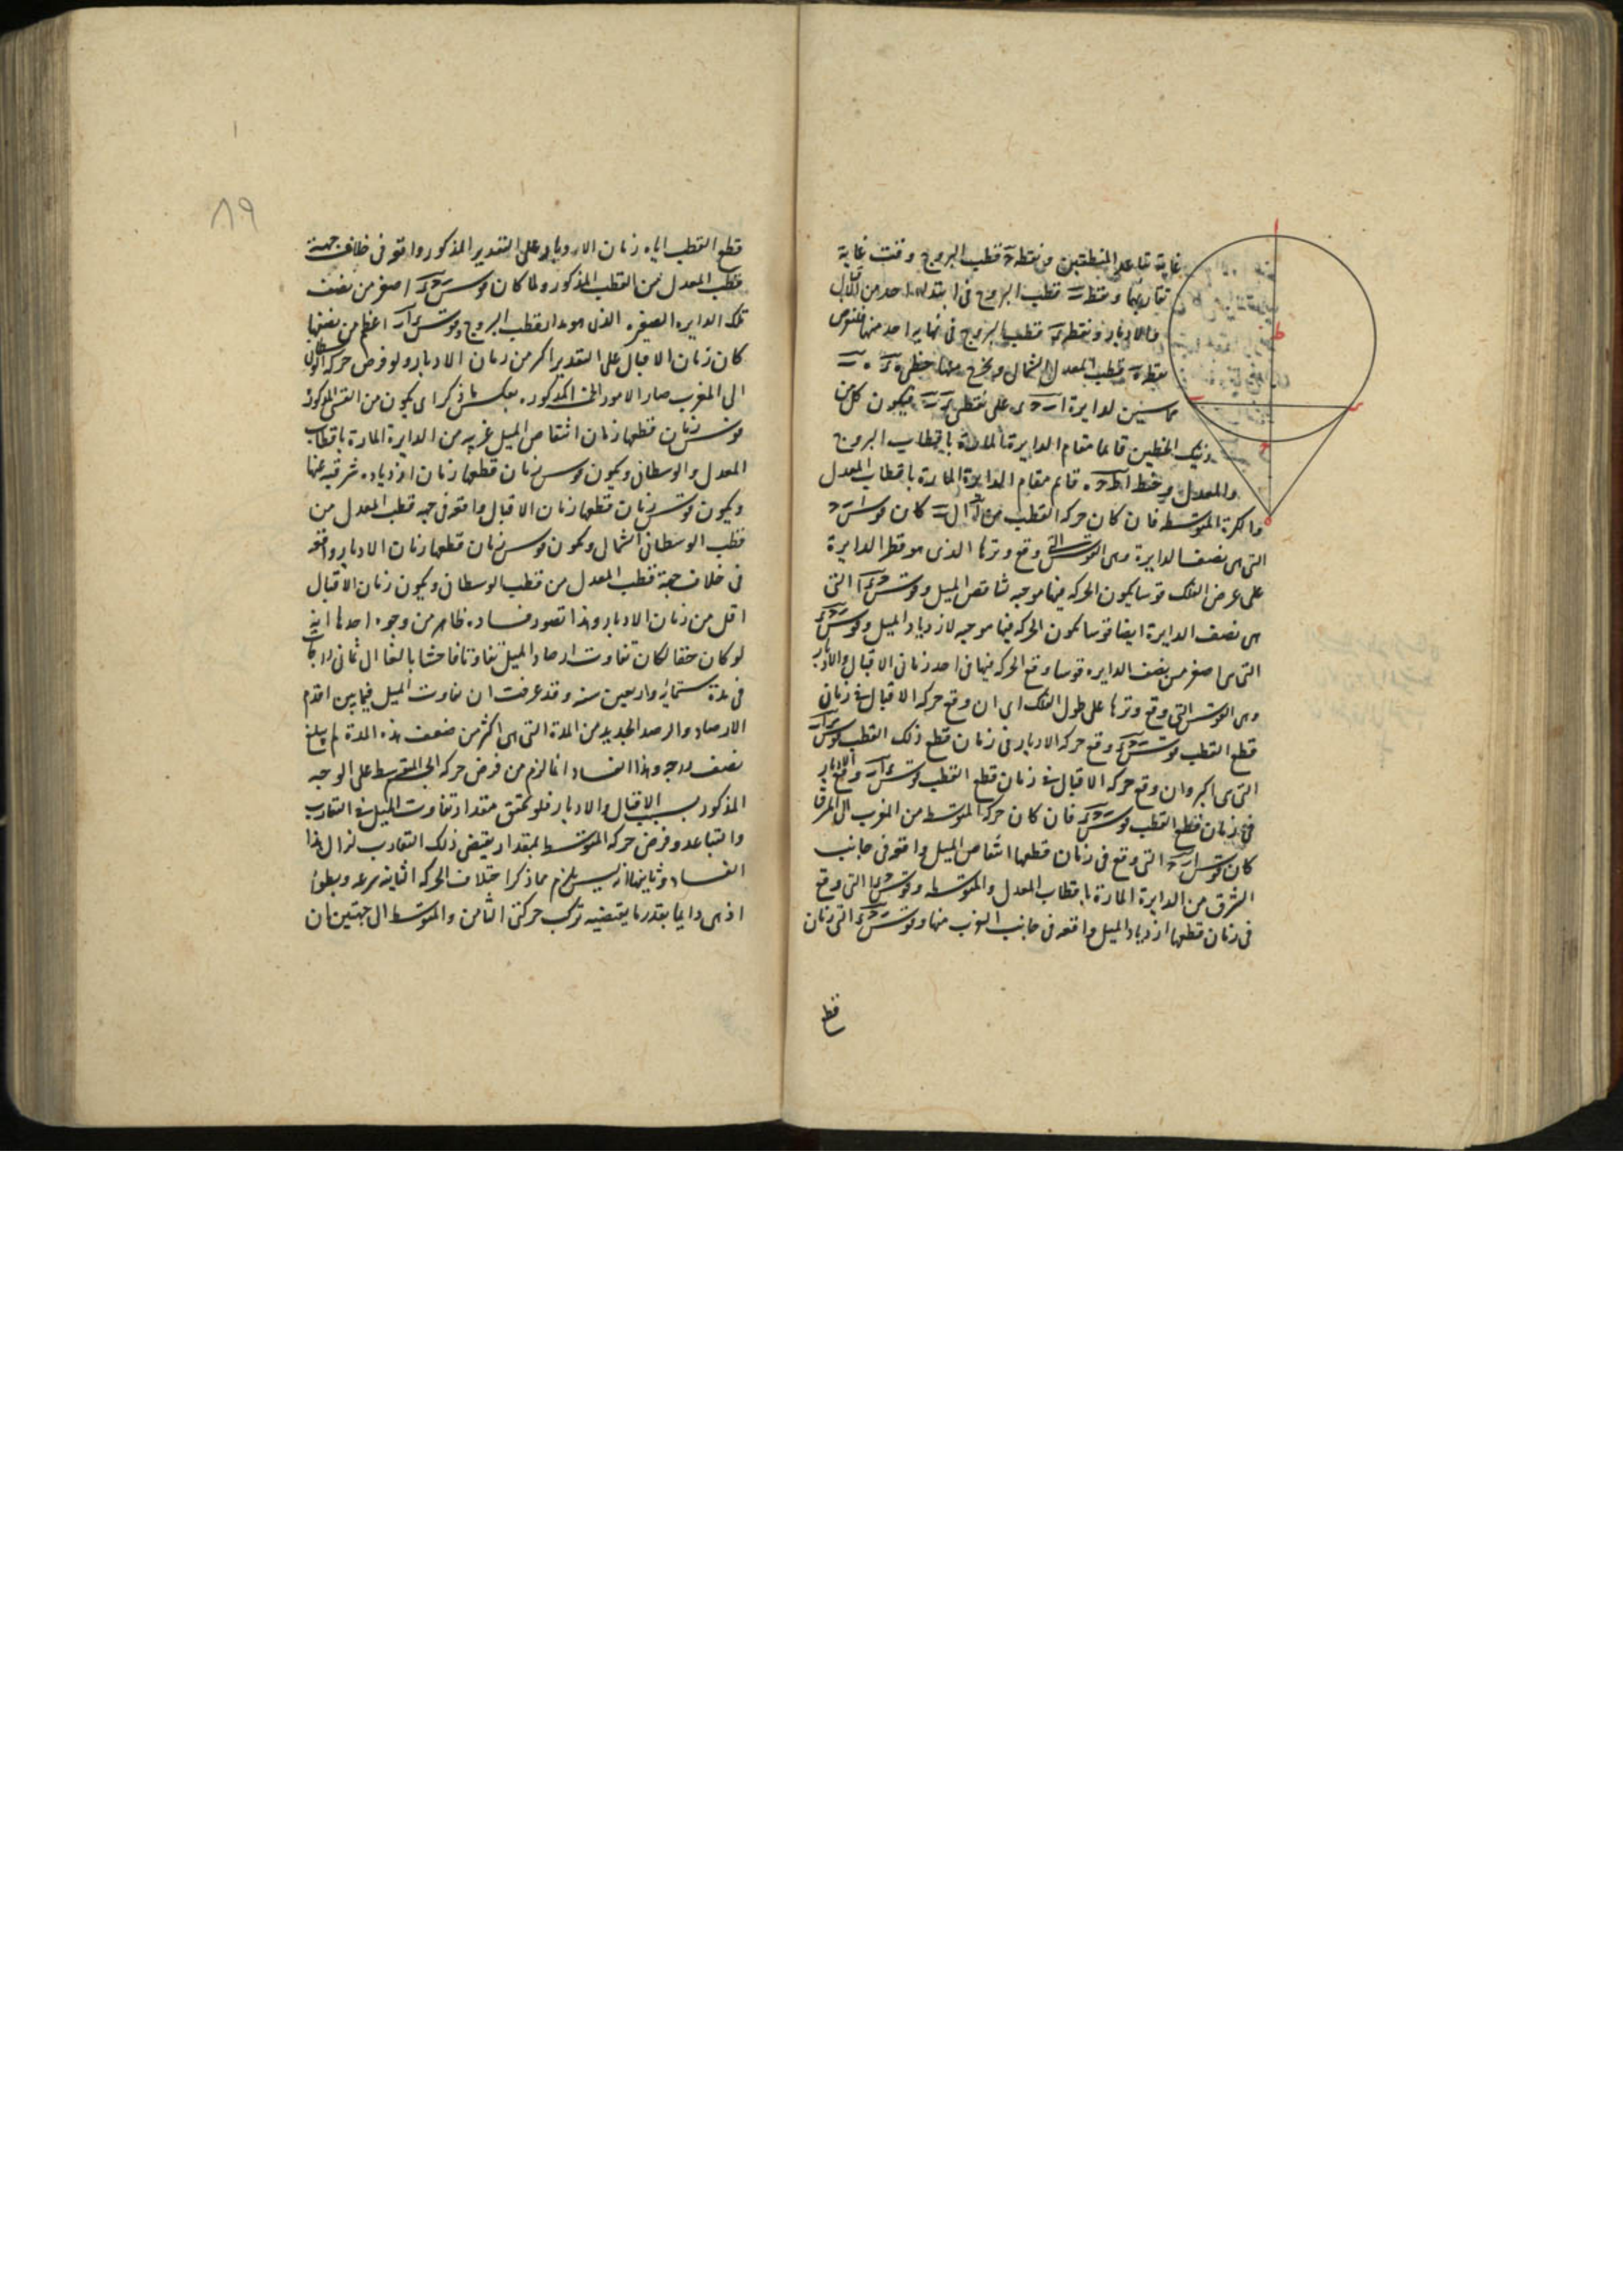 غاية تباعد المنطقتين ونقطة ح قطب البروج وقت غاية
تقاربهما ونقطة ب قطب البروج في ابتداء احد من الاقبال
والادبار ونقطة ر قطب البروج في نهاية احد منهما فنفرض
نقطة ه قطب المعدل الشمالي ويخرج منها خطي ه ر ه ب
مماسين لدايرة اب ح ر على نقطتي ر ب فيكون كل من
ذينك الخطين قائما مقام الدايرة المارة باقطاب البروج
والمعدل وخط اط ح ه قائم مقام الدايرة المارة باقطاب المعدل
والكرة المتوسطة فان كان حركة القطب من ا الى ب كان قوس اب ح
التي هي نصف الدايرة وهي القوس التي وقع وترها الذي هو قطر الدايرة
على عرض الفلك قوسا يكون الحركة فيها موجبة لتناقص الميل وقوس ح ر ا التي
هي نصف الدايرة ايضا قوسا يكون الحركة فيها موجبة لازدياد الميل وقوس ب ح ر
التي هي اصغر من نصف الدايره قوسا وقع الحركة فيها في احد زماني الاقبال والادبار
وهي القوس التي وقع وترها على طول الفلك اي ان وقع حركة الاقبال في زمان
قطع القطب قوس ب ح ر وقع حركة الادبار في زمان قطع ذلك القطب قوس ر ا ب
التي هي اكبر وان وقع حركة الاقبال في زمان قطع القطب قوس ر ا ب وقع الادبار
في زمان قطع القطب قوس ب ح ر فان كان حركة المتوسط من المغرب الى المشرق
كان قوس ا ب ح التي وقع في زمان قطعها انتقاص الميل واقعة في جانب
الشرق من الدايرة المارة باقطاب المعدل والمتوسطه وقوس ح ر ا التي وقع
في زمان قطعها ازدياد الميل واقعة في جانب الغرب منها وقوس ب ح ر التي زمان
قطع
٨٩
قطع القطب اياه زمان الادبار وعلى التقدير المذكور واقعة في خلاف جهة
قطب المعدل من القطب المذكور ولما كان قوس ب ح ر اصغر من نصف
تلك الدايره الصغيره الذي هو مدار قطب البروج وقوس ر ا ب اعظم من نصفها
كان زمان الاقبال على التقدير اكثر من زمان الادبار ولو فرض حركة الوسطاني
الى المغرب صار الامور المذكوره بعكس ما ذكر اي يكون من القسي المذكورة
قوس زمان قطعها زمان انتقاص الميل غربيه من الدايرة المارة باقطاب
المعدل والوسطاني ويكون قوس زمان قطعها زمان ازدياده شرقيه عنها
ويكون قوس زمان قطعها زمان الاقبال واقعة في جهة قطب المعدل من
قطب الوسطاني الشمالي ويكون قوس زمان قطعها زمان الادبار واقعة
في خلاف جهة قطب المعدل من قطب الوسطاني ويكون زمان الاقبال
اقل من زمان الادبار وهذا تصور فساده ظاهر من وجوه احدها انه
لو كان حقا لكان تفاوت ارصاد الميل تفاوتا فاحشا بالغا الى ثماني درجات
في مدة ستمايه واربعين سنه وقد عرفت ان تفاوت الميل فيما بين اقدم
الارصاد والرصد الجديد من المدة التي هي اكثر من ضعف هذه المدة لم يبلغ
نصف درجه وهذا الفساد انما لزم من فرض حركة المتوسط على الوجه
المذكور بسبب الاقبال والادبار فلو تحقق مقدار تفاوت الميل في التقارب
والتباعد وفرض حركة المتوسط بمقدار يقتضي ذلك التقارب لزال هذا
الفساد وثانيها انه ليس يلزم مما ذكر اختلاف الحركة الثانية سرعة وبطؤا
اذ هي دايما بقدر ما يقتضيه تركب حركتي الثامن والمتوسط الى جهتين فان